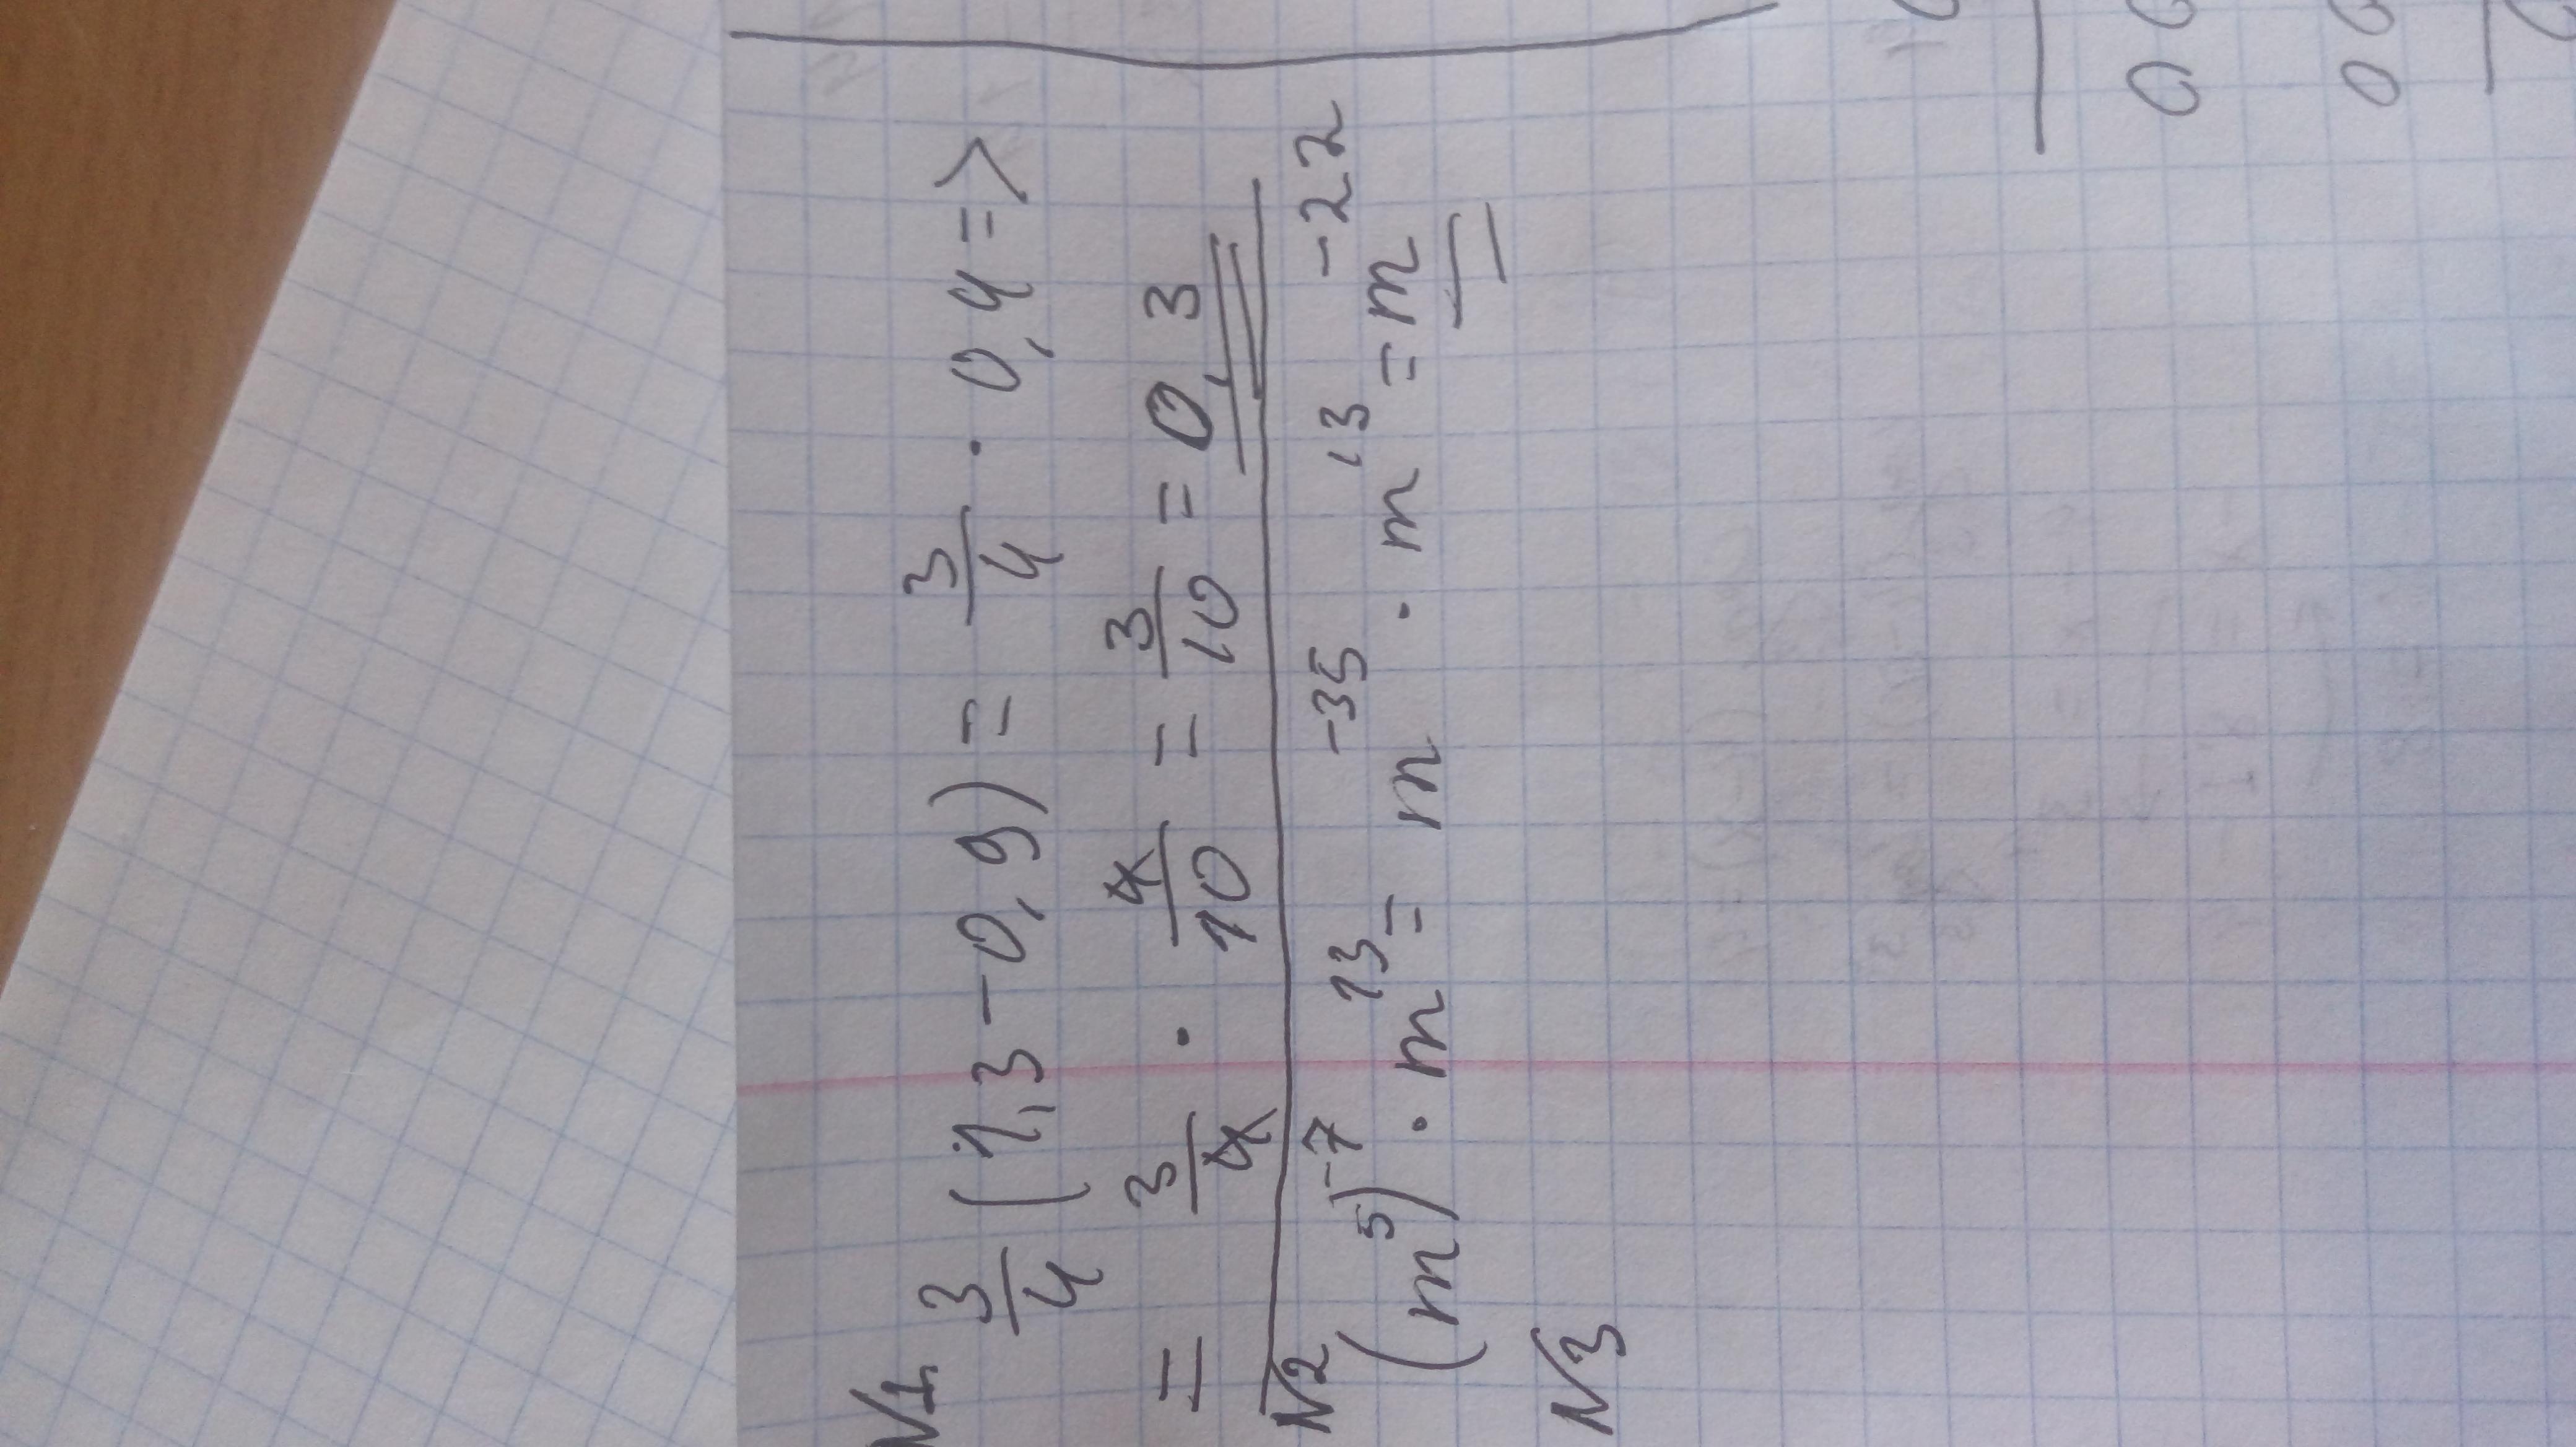 N1.
3/4 (1,3 - 0,9) = 3/4 · 0,4 =>
= 3/4 · 4/10 = 3/10 = 0,3
N2
(m⁵)⁻⁷ · m¹³ = m⁻³⁵ · m¹³ = m⁻²²
N3